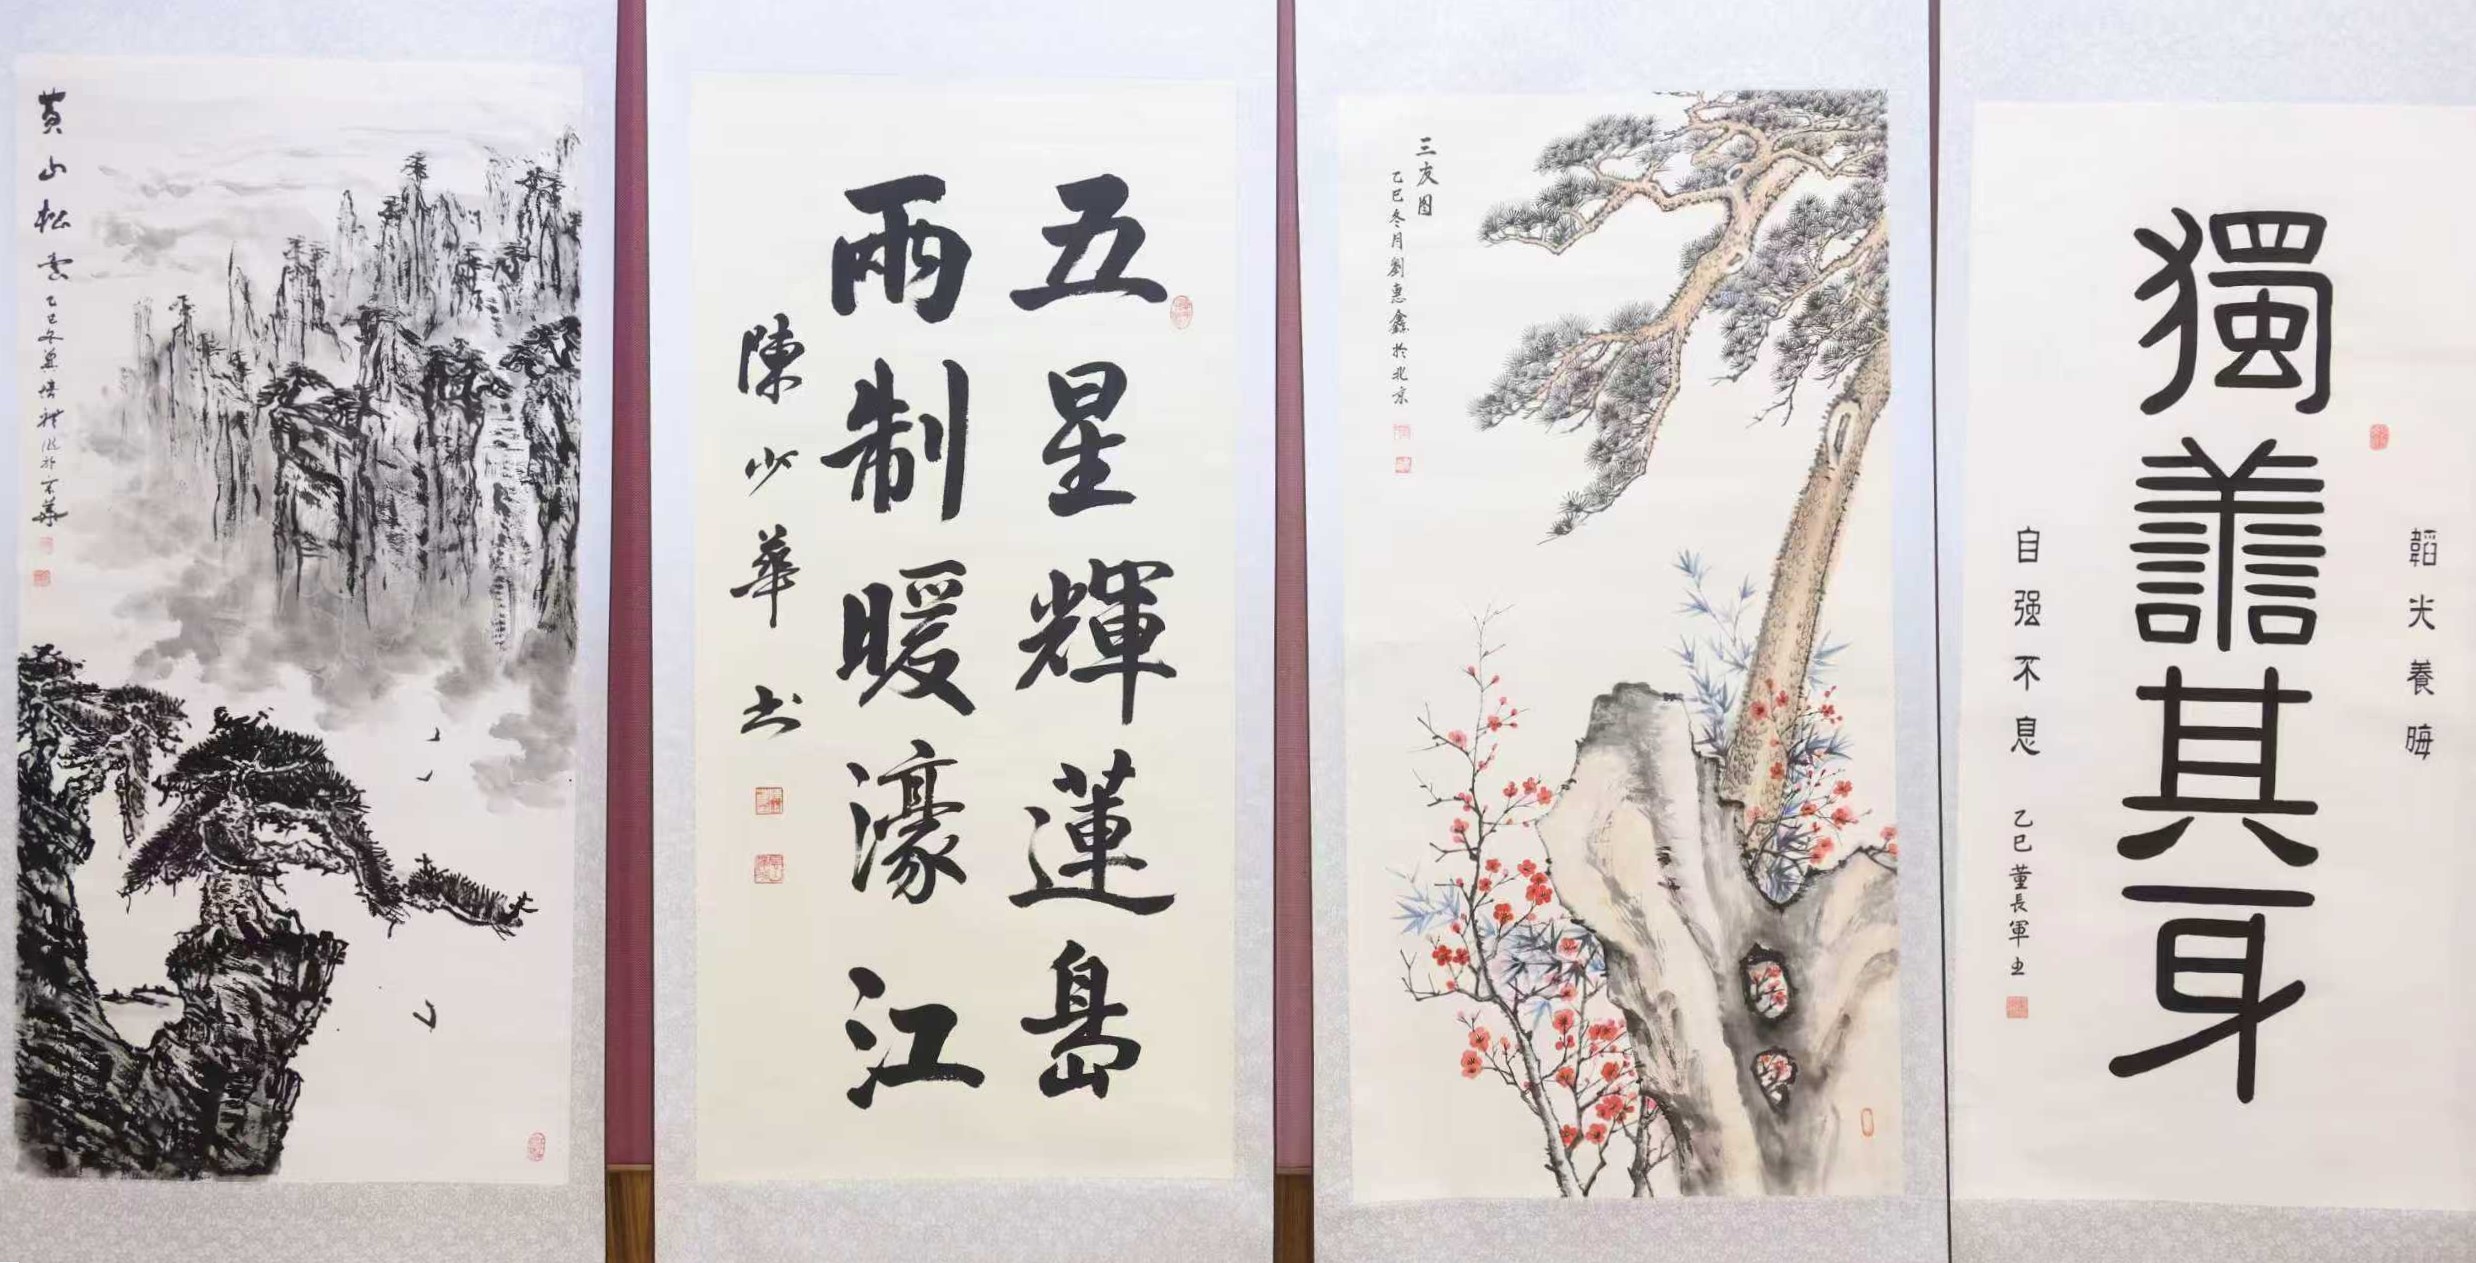 黄山松雲
乙巳冬
五星輝蓮島
兩制暖濠江
陳少華书
三友图
乙巳冬月劉惠鑫於北京
韜光養晦
獨善其身
自强不息
乙巳董長軍书